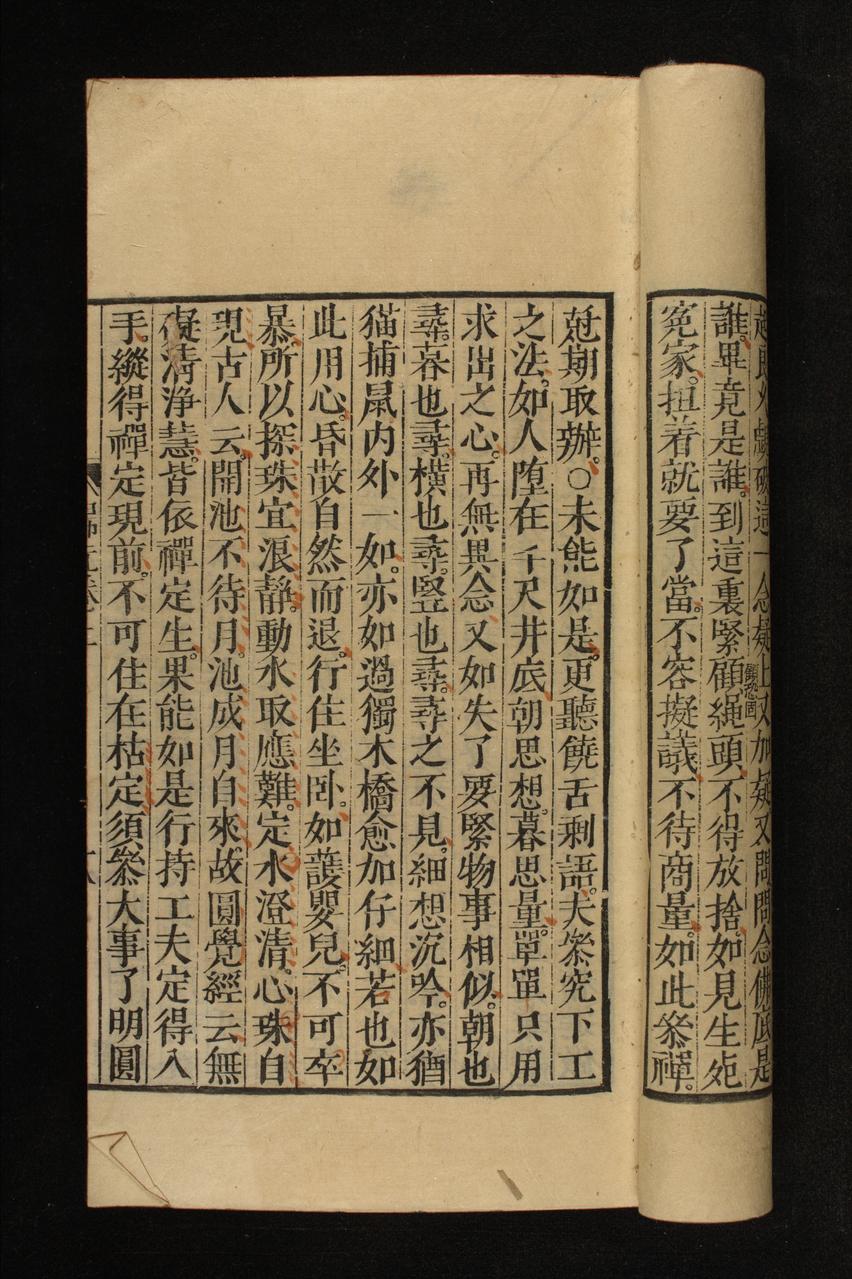 起良久戲破這一念疑上又加疑又問問念佛底是
誰畢竟是誰到這裏緊顧繩頭不得放捨如見生死
冤家担着就要了當不容擬議不待商量如此叅禪
尅期取辦○未能如是更聽饒舌剩語夫叅究下工
之法如人墮在千尺井底朝思想暮思量單單只用
求出之心再無異念又如失了要緊物事相似朝也
尋暮也尋橫也尋竪也尋尋之不見細想沉吟亦猶
猫捕鼠内外一如亦如過獨木橋愈加仔細若也如
此用心昏散自然而退行住坐卧如護嬰兒不可卒
暴所以探珠宜浪靜動水取應難定水澄清心珠自
現古人云開池不待月池成月自來故圓覺經云無
礙清淨慧皆依禪定生果能如是行持工夫定得入
手縱得禪定現前不可住在枯定須叅大事了明圓